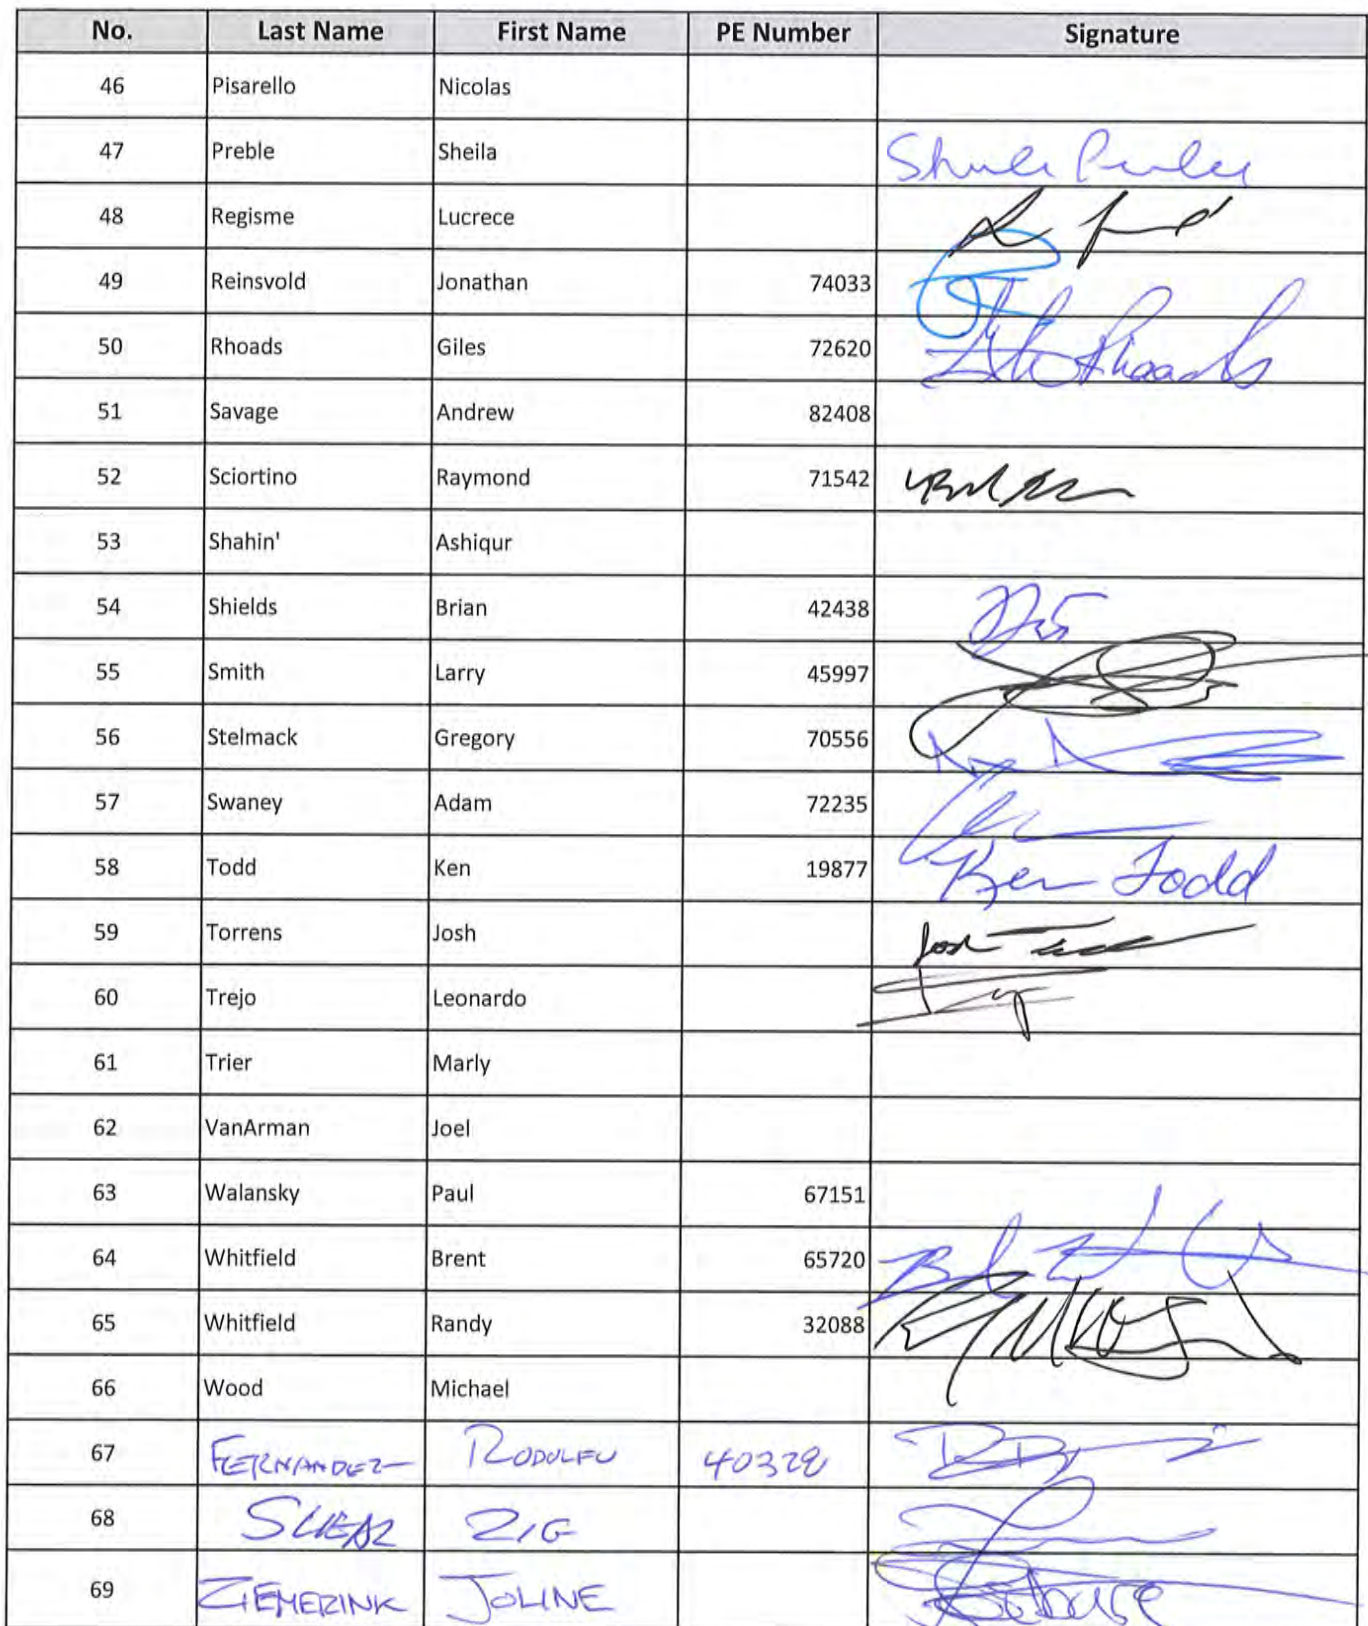 No. Last Name First Name PE Number Signature
46 Pisarello Nicolas
47 Preble Sheila
48 Regisme Lucrece
49 Reinsvold Jonathan 74033
50 Rhoads Giles 72620
51 Savage Andrew 82408
52 Sciortino Raymond 71542
53 Shahin' Ashiqur
54 Shields Brian 42438
55 Smith Larry 45997
56 Stelmack Gregory 70556
57 Swaney Adam 72235
58 Todd Ken 19877 Ken Todd
59 Torrens Josh Josh
60 Trejo Leonardo
61 Trier Marly
62 VanArman Joel
63 Walansky Paul 67151
64 Whitfield Brent 65720
65 Whitfield Randy 32088
66 Wood Michael
67 FERNANDEZ RODOLFO
68 ZIG
69 ZIEMERINK JOLINE